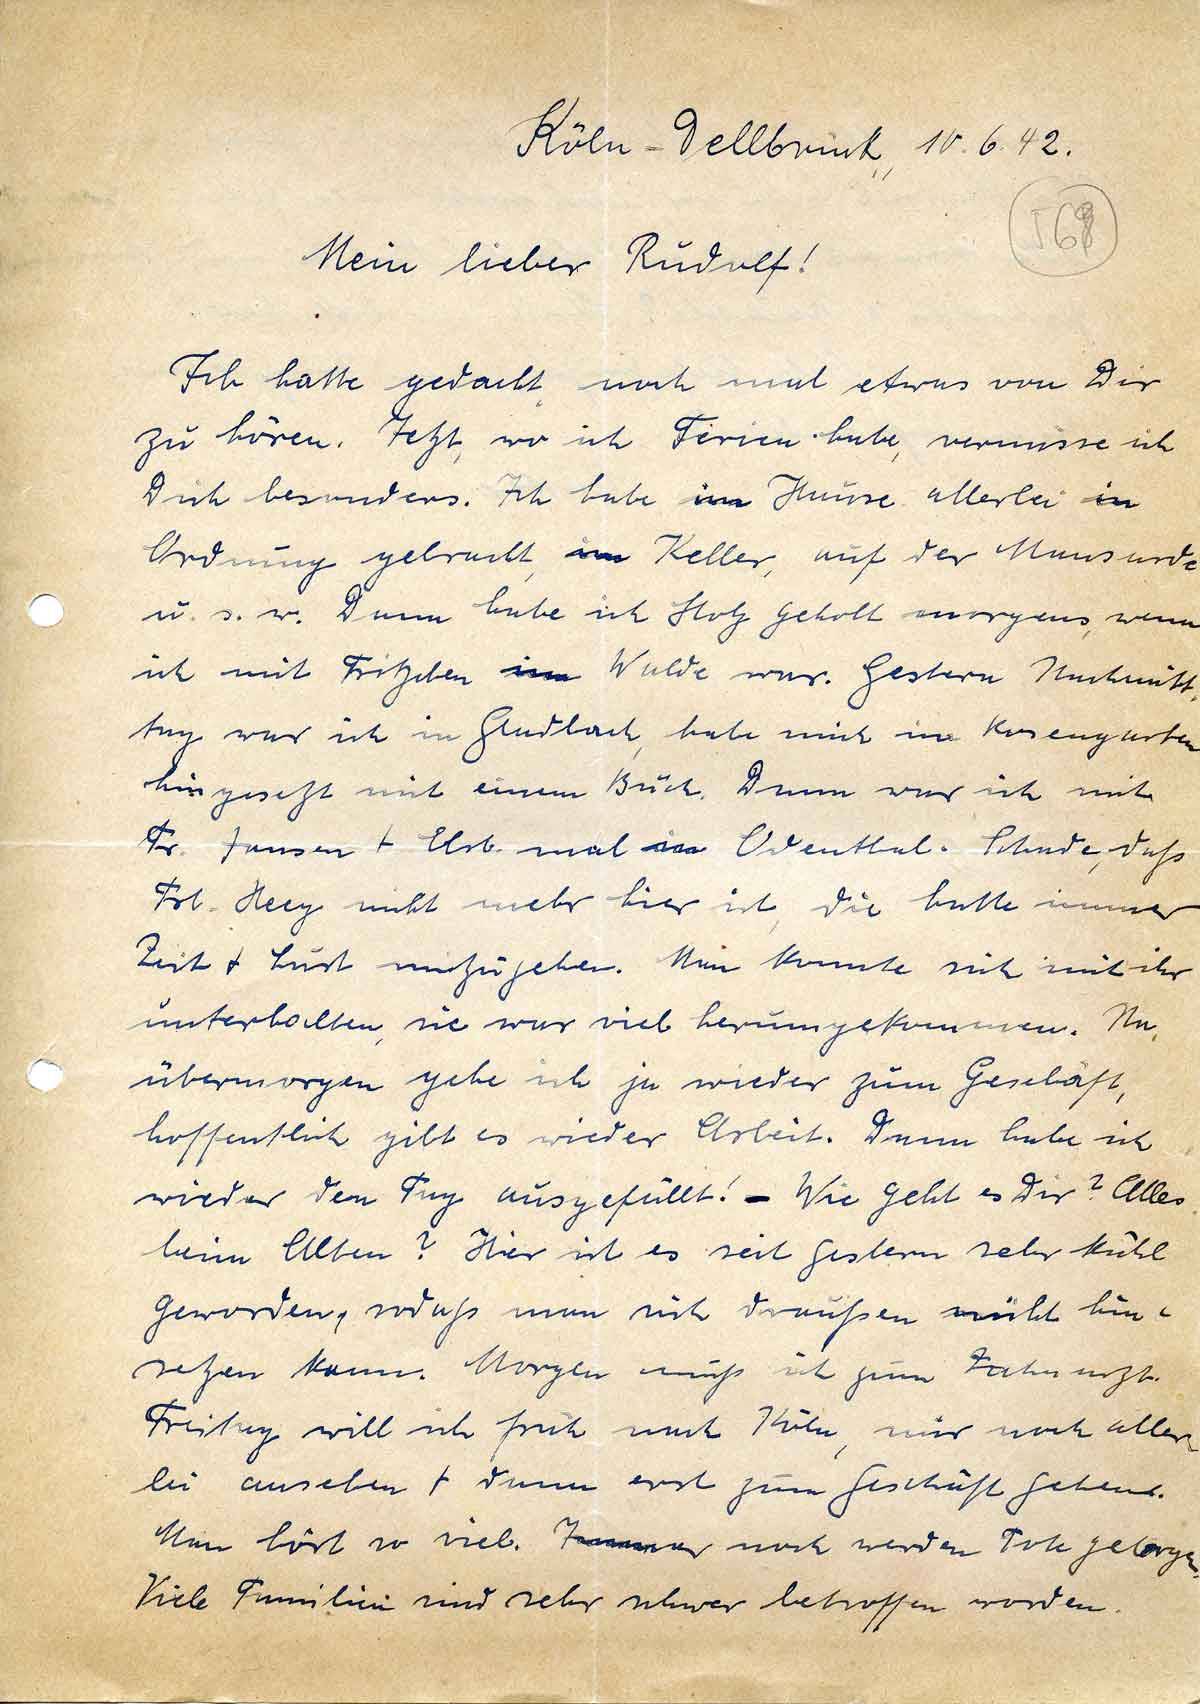 Köln-Dellbrück, 10.6.42.
568
Mein lieber Rudolf!
Ich hatte gedacht, noch mal etwas von Dir
zu hören. Jetzt, wo ich Ferien habe, vermisse ich
Dich besonders. Ich habe im Hause allerlei in
Ordnung gebracht, im Keller, auf der Mansarde
u. s. w. Dann habe ich Holz geholt morgens, wenn
ich mit Fritzchen im Walde war. Gestern Nachmitt-
tag war ich in Gladbach, habe mich im Rosengarten
hingesetzt mit einem Buch. Dann war ich mit
Fr. Jansen + Elis. mal in Odenthal. Schade, daß
Frl. Heeg nicht mehr hier ist, die hatte immer
Zeit + Lust mitzugehen. Man konnte sich mit ihr
unterhalten, sie war viel herumgekommen. Na,
übermorgen gehe ich ja wieder zum Geschäft,
hoffentlich gibt es wieder Arbeit. Dann habe ich
wieder den Tag ausgefüllt! – Wie geht es Dir? Alles
beim Alten? Hier ist es seit gestern sehr kühl
geworden, sodaß man sich draußen nicht hin-
setzen kann. Morgen muß ich zum Zahnarzt.
Freitag will ich früh nach Köln, mir noch aller-
lei ansehen + dann erst zum Geschäft gehen.
Man hört so viel. Immer noch werden Tote geborgen.
Viele Familien sind sehr schwer betroffen worden.